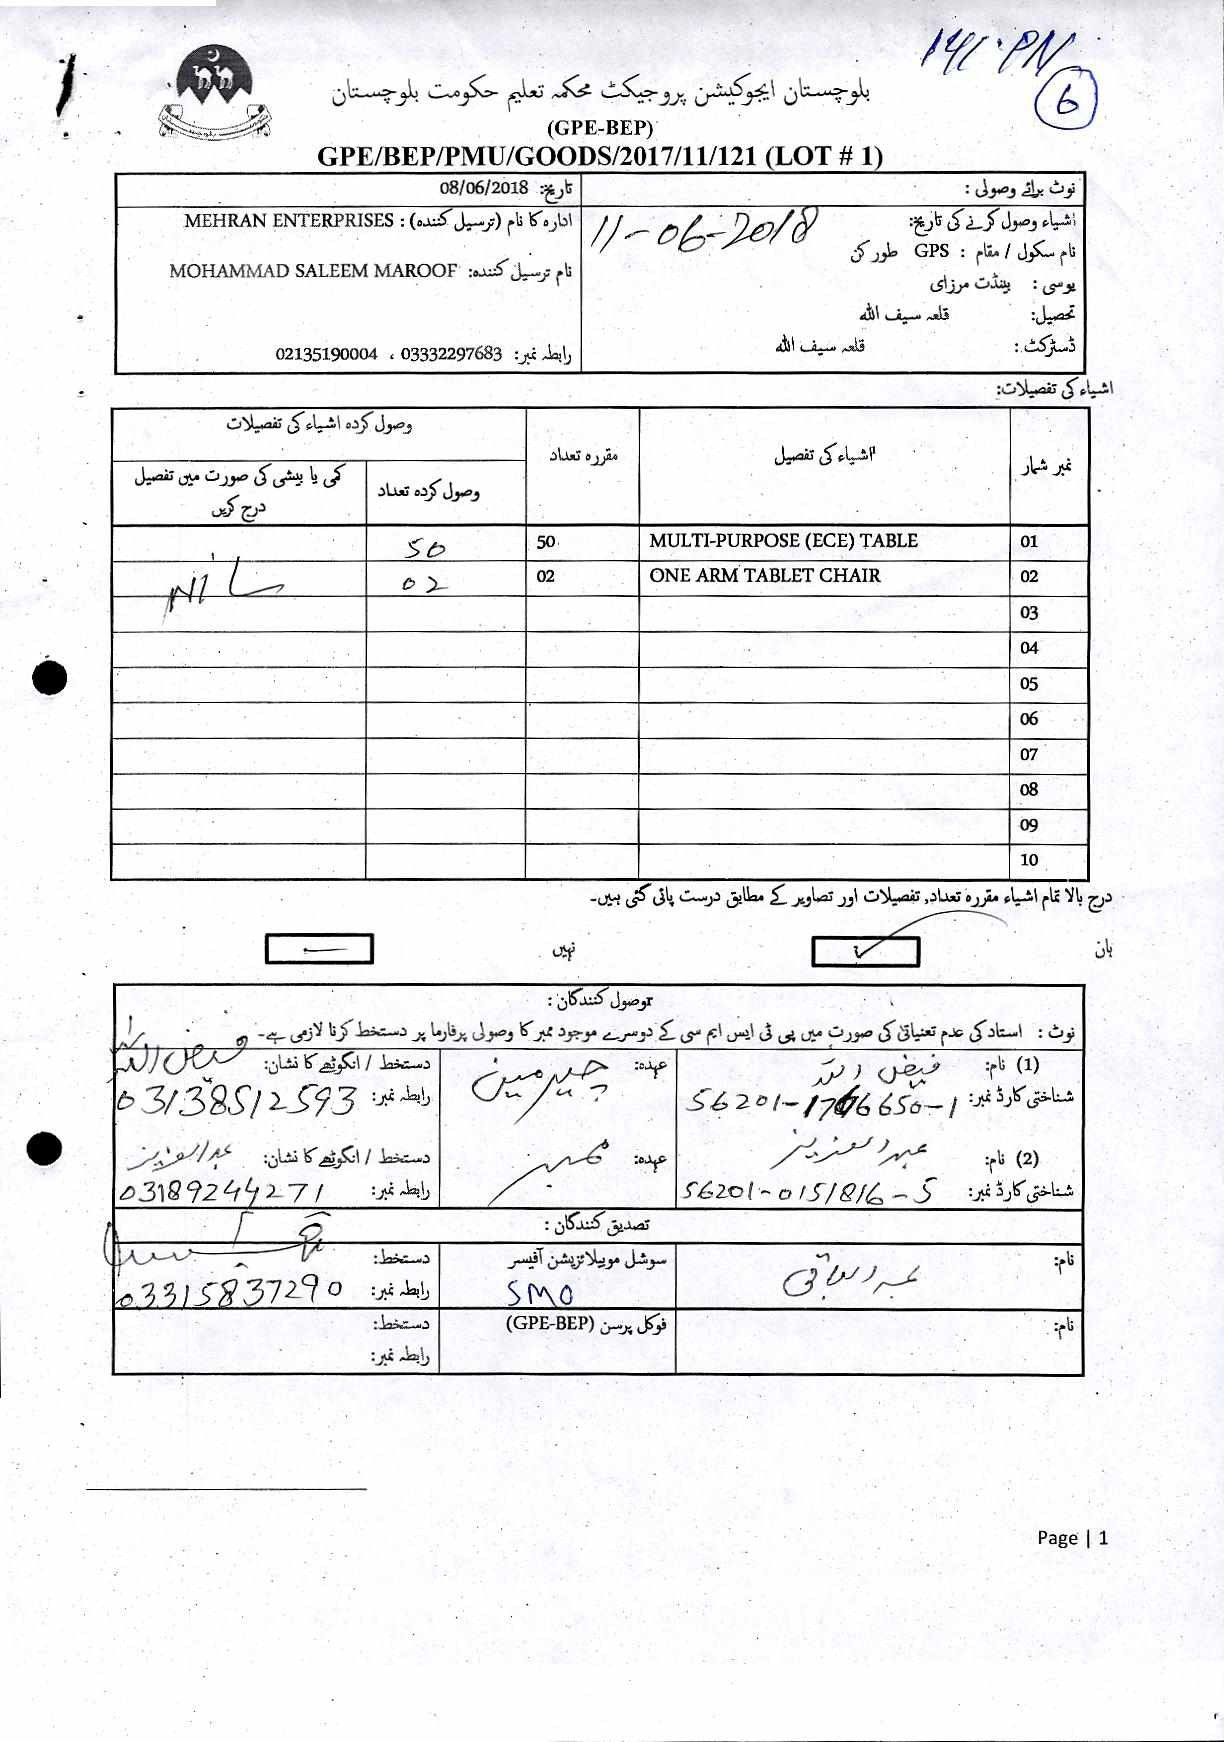 6
بلوچستان ایجوکیشن پروجیکٹ محکمہ تعلیم حکومت بلوچستان
(GPE-BEP)
GPE/BEP/PMU/GOODS/2017/11/121 (LOT # 1)
نوٹ برائے وصولی :
تاریخ: 08/06/2018
اشیاء وصول کرنے کی تاریخ: 11-06-2018
نام سکول / مقام : GPS طور کن
یوسی : بینڈت مرزای
تحصیل: قلعہ سیف اللہ
ڈسٹرکٹ: قلعہ سیف اللہ
ادارہ کا نام (ترسیل کنندہ) : MEHRAN ENTERPRISES
نام ترسیل کنندہ: MOHAMMAD SALEEM MAROOF
رابطہ نمبر: 03332297683 ، 02135190004
اشیاء کی تفصیلات:
نمبر شمار اشیاء کی تفصیل مقررہ تعداد وصول کردہ اشیاء کی تفصیلات
وصول کردہ تعداد کمی یا بیشی کی صورت میں تفصیل درج کریں
01 MULTI-PURPOSE (ECE) TABLE 50 50
02 ONE ARM TABLET CHAIR 02 02
03
04
05
06
07
08
09
10
درج بالا تمام اشیاء مقررہ تعداد, تفصیلات اور تصاویر کے مطابق درست پائی گئی ہیں۔
ہاں نہیں
وصول کنندگان :
نوٹ : استاد کی عدم تعنیاتی کی صورت میں پی ٹی ایس ایم سی کے دوسرے موجود ممبر کا وصولی پرفارما پر دستخط کرنا لازمی ہے۔
(1) نام: فیض اللہ عہدہ: چیرمین دستخط / انگوٹھے کا نشان: فیض اللہ
شناختی کارڈ نمبر: رابطہ نمبر: 03138512593
(2) نام: عبدالعزیز عہدہ: ممبر دستخط / انگوٹھے کا نشان: عبدالعزیز
شناختی کارڈ نمبر: 56201-0151816-5 رابطہ نمبر: 03189244271
تصدیق کنندگان :
نام: عبدالباقی سوشل موبیلائزیشن آفیسر دستخط:
SMO رابطہ نمبر: 03315837290
نام: فوکل پرسن (GPE-BEP) دستخط:
رابطہ نمبر:
Page | 1